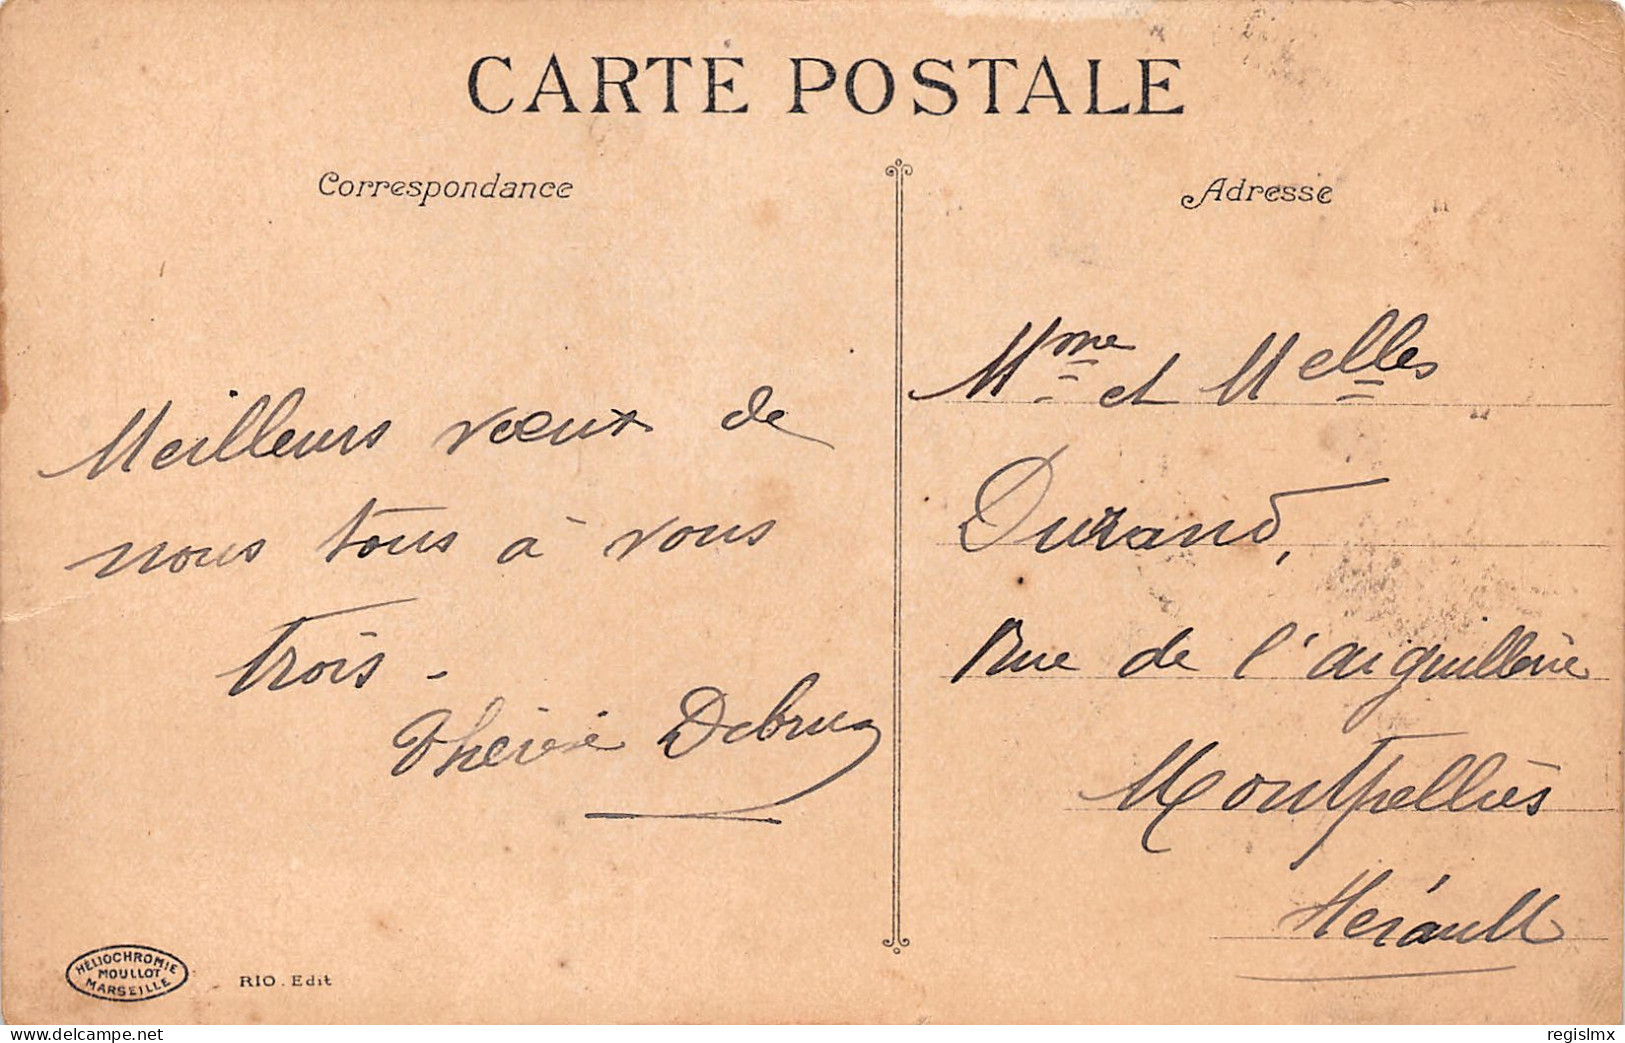 CARTE POSTALE
Correspondance
Meilleurs vœux de
nous tous à vous
trois -
Thérèse
Adresse
Mme et Melles
Durand,
Rue de l'aiguillerie
Montpellier
Hérault
HÉLIOCHROMIE
MOULLOT
MARSEILLE
RIO. Edit
www.delcampe.net
regislmx